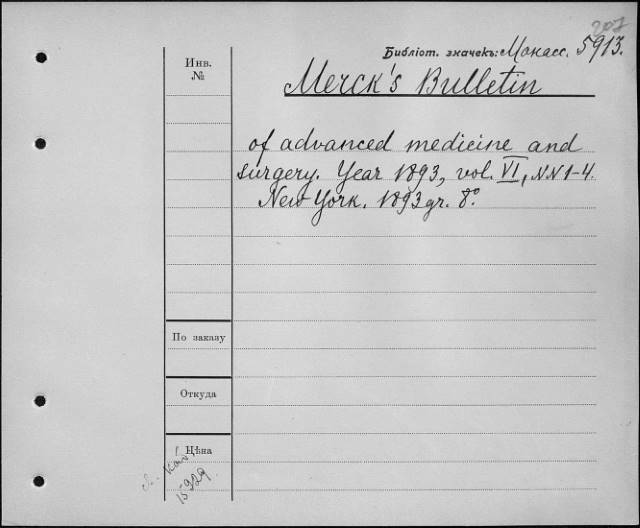 207
Библіот. значекъ: Монасс. 5913.
Инв.
№
Merck's Bulletin
of advanced medicine and
surgery. Year 1893, vol. VI, NN 1-4.
New York. 1893 gr. 8°.
По заказу
Откуда
Цѣна
15929